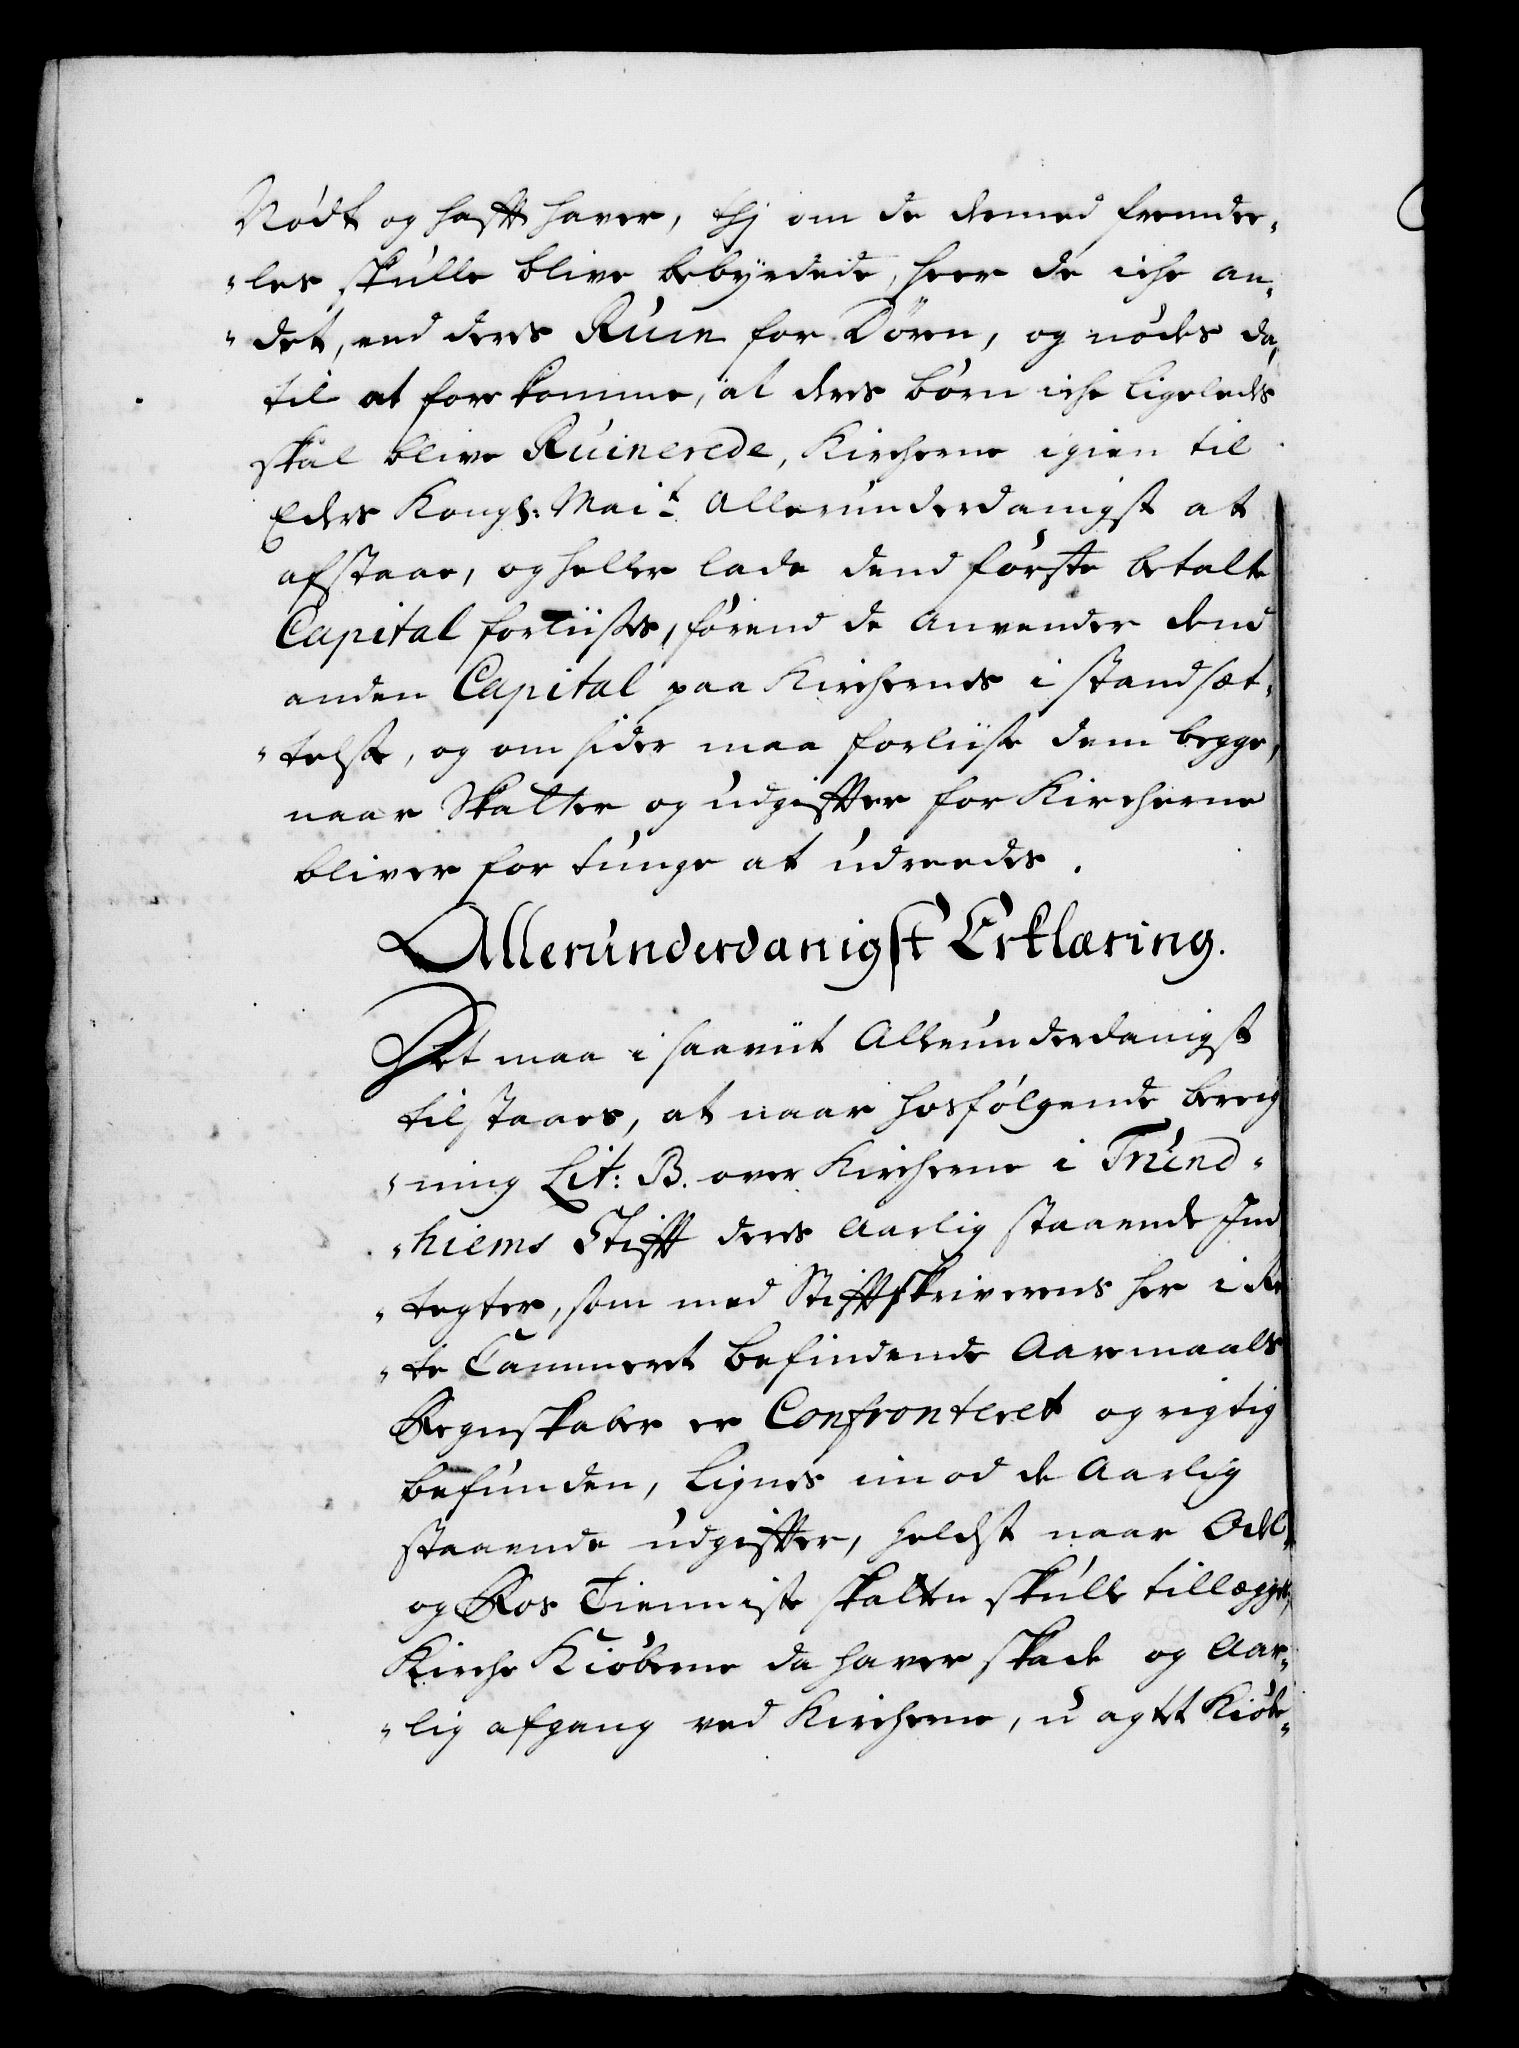 Nødt og hafft haver, thj om de dermed fremdee-
-les skulle blive bebyrdede, seer de iche an-
-det, end deres Ruin for Dören, og nödes da,
til at forekomme, at deres börn iche ligeleedes
skal blive Ruinerede, Kircherne igien til
Eders Kongl: Mait Allerunderdanigst at
afstaae, og heller lade dend förste betalte
Capital forliises, förend de anvender dend
anden Capital paa Kirchernes i standsæt-
-telse, og omsider maa forliise dem begge,
naar Skatter og udgiffter for Kircherne
bliver for tunge at udreedes.
Allerunderdanigst Erklæring.
Det maa i saaviit Allerunderdanigst
tilstaaes, at naar hosfölgende bereig
-ning Lit: B. over Kircherne i Trund-
-hiems Stifft deres Aarlig staaende Ind
-tegter, som med Stifftskriverens her i Re
-te Cammeret befindende Aaremaals
Regnskaber er Confronteret og rigtig
befunden, Lignes imod de Aarlig
staaende udgiffter, heldst naar Odel
og Ros Tienniste skatten skulle tillægges,
Kirche Kiöberne da haver skade og Aar-
-lig afgang ved Kircherne, u agtet Kiöbe-